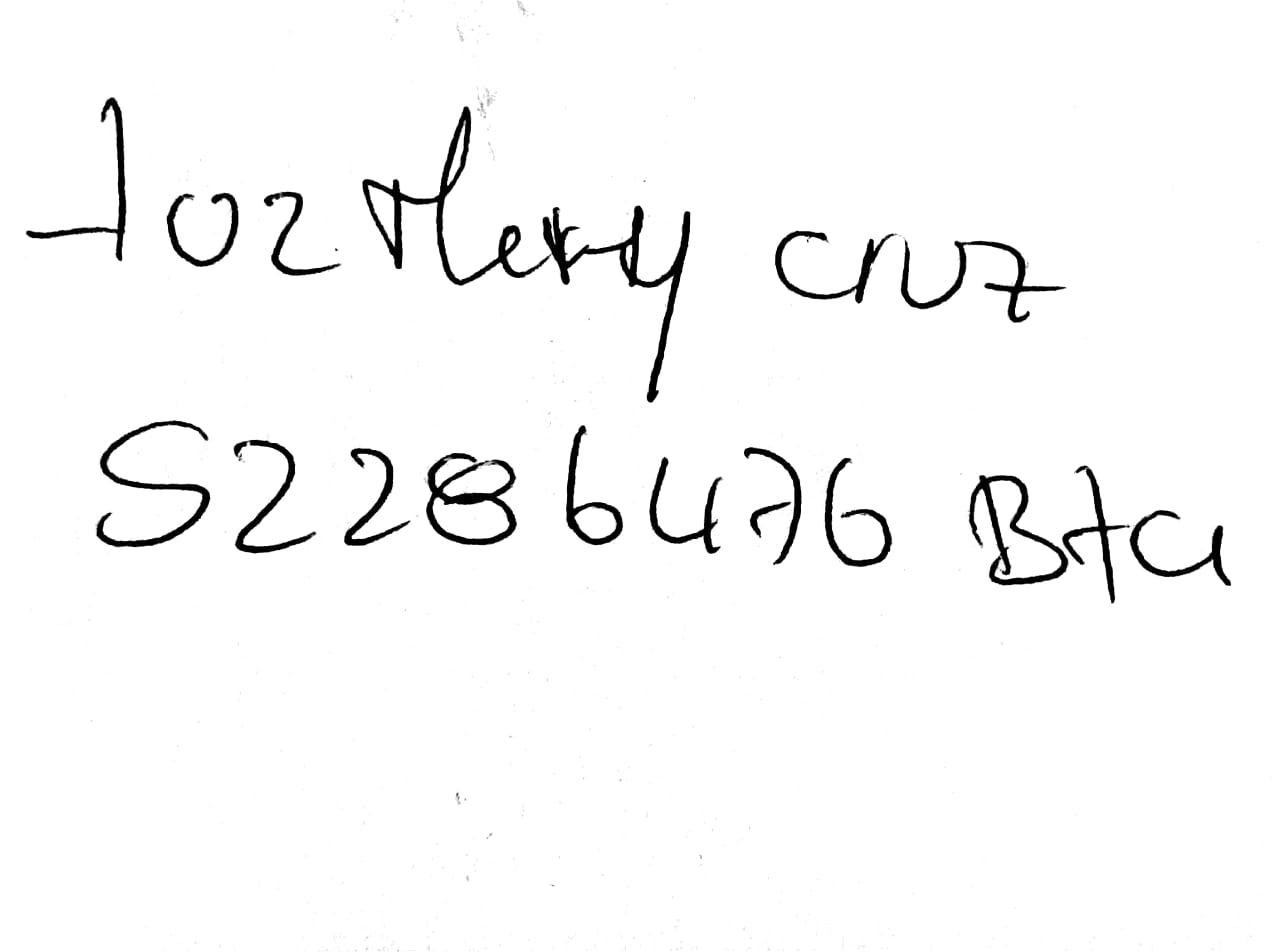 Luz Mery cruz
52286476 Bta